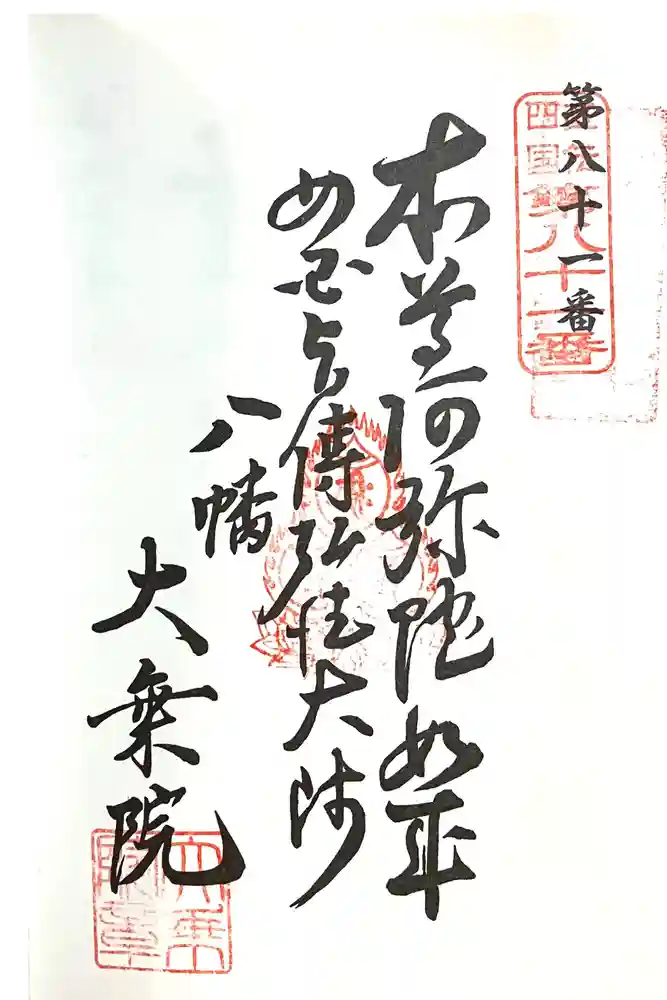 第八十一番
四国第八十一番
本尊阿弥陀如来
傳弘法大師
八幡
大乗院
大乗院章